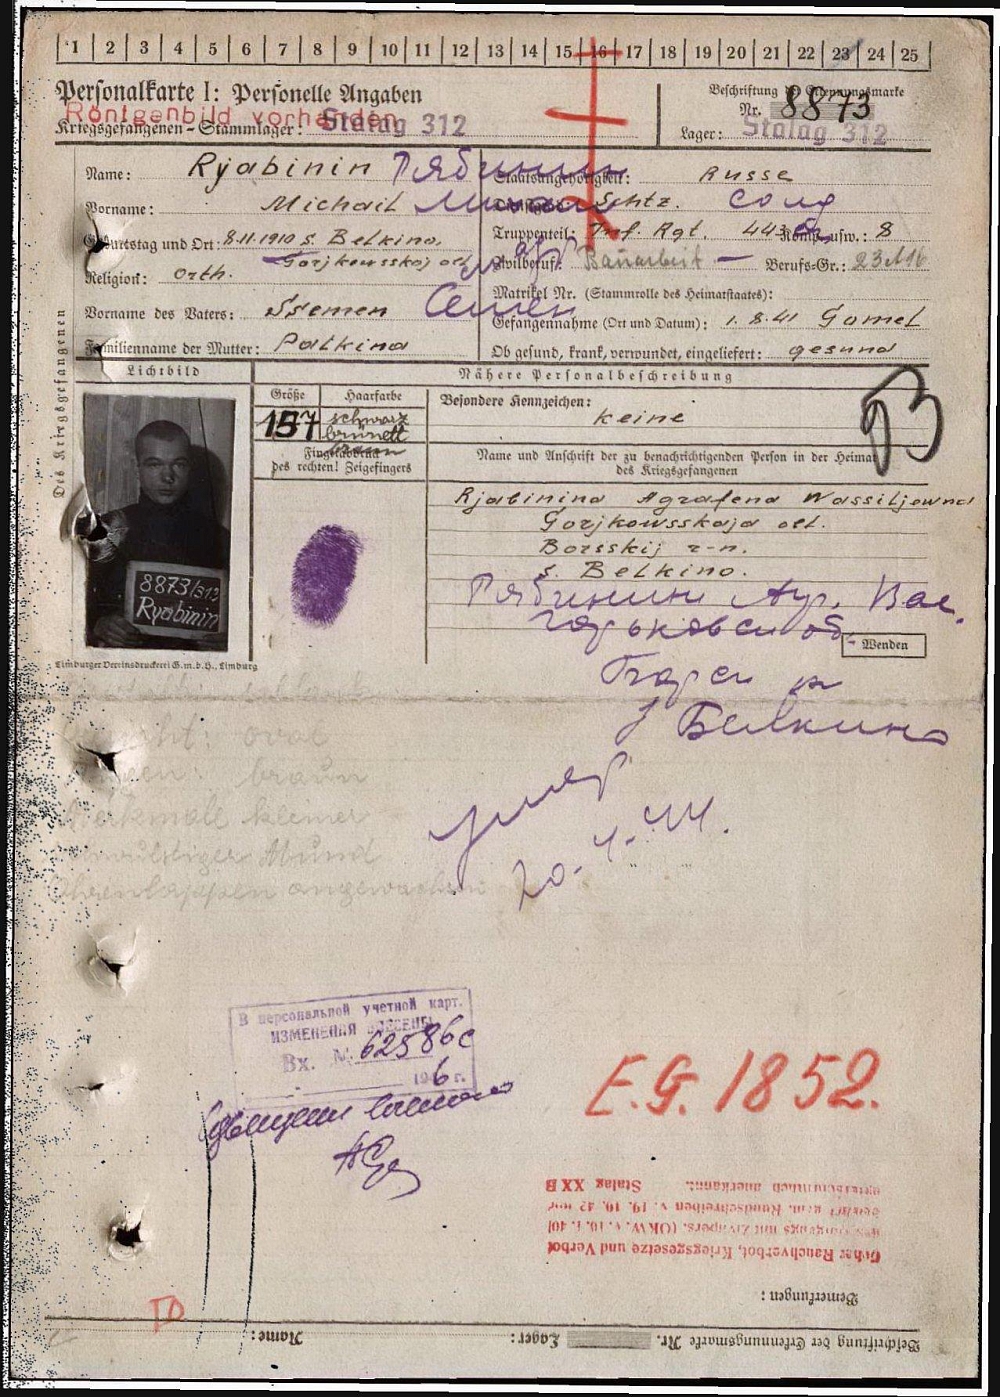 1 2 3 4 5 6 7 8 9 10 11 12 13 14 15 16 17 18 19 20 21 22 23 24 25
Personalkarte I: Personelle Angaben
Röntgenbild vorhanden
Kriegsgefangenen-Stammlager: Stalag 312
Beschriftung der Erkennungsmarke
Nr. 8873
Lager: Stalag 312
Des Kriegsgefangenen
Name: Ryabinin Рябинин
Vorname: Michail
Geburtstag und Ort: 8.11.1910 s. Belkino,
Gorjkowsskoj obl
Religion: Orth.
Vorname des Vaters: Ssemen Семен
Familienname der Mutter: Palkina
Staatsangehörigkeit: Russe
Schtz. солд
Truppenteil: Inf. Rgt. 443 Komp. usw.: 8
Zivilberuf: Bauarbeit Berufs-Gr.:
Matrikel Nr. (Stammrolle des Heimatstaates):
Gefangennahme (Ort und Datum): 1.8.41 Gomel
Ob gesund, krank, verwundet, eingeliefert: gesund
Lichtbild
Nähere Personalbeschreibung
Größe Haarfarbe
157 schwarz
brünett
Fingerabdruck
des rechten! Zeigefingers
Besondere Kennzeichen:
keine
Name und Anschrift der zu benachrichtigenden Person in der Heimat
des Kriegsgefangenen
Rjabinina Agrafena Wassiljewna
Gorjkowsskaja obl.
Borsskij r-n.
s. Belkino.
Рябинин Агр. Вас.
Горьковск об.
Борск р
с Белкино
8873/312
Ryabinin
Wenden
Limburger Vereinsdruckerei G.m.b.H., Limburg
oval
braun
Merkmal kleiner
wulstiger Mund
Ohrenlappen angewachsen
умер
20.4.44.
В персональной учетной карт.
ИЗМЕНЕНИЯ ВНЕСЕНЫ
Вх. № 62586с
1946 г.
E.G. 1852.
Ueber Rauchverbot, Kriegsgesetze und Verbot
des Umgangs mit Zivilpers. (OKW. v. 16. 1. 40)
belehrt gem. Rundschreiben v. 19. 10. 42 und
unterschriftlich anerkannt. Stalag XX B
Bemerkungen:
Beschriftung der Erkennungsmarke Nr. Lager: Name: